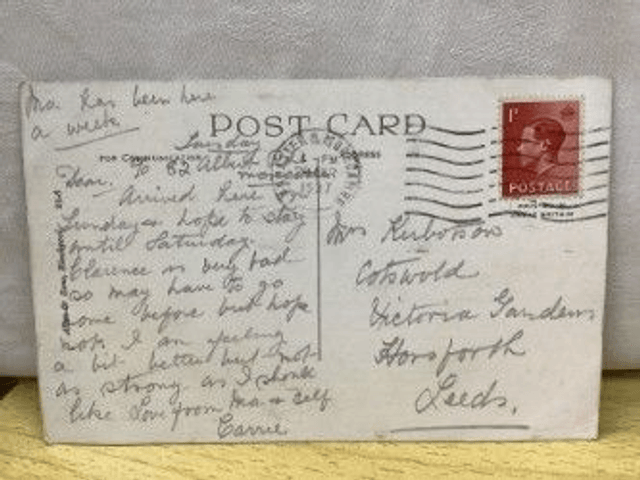 Ma. has been here
a week
POST CARD
FOR COMMUNICATION
ADDRESS
Tuesday
To 82 Albert
Morecambe
Dear.
Arrived here on
Sunday & hope to stay
until Saturday.
Clarence is very bad
so may have to go
home before but hope
not. I am feeling
a bit better but not
as strong as I should
like Love from Ma & self
Carrie
PM
1937
1D
POSTAGE
GREAT BRITAIN
Mrs
Cotswold
Victoria Gardens
Horsforth
Leeds.